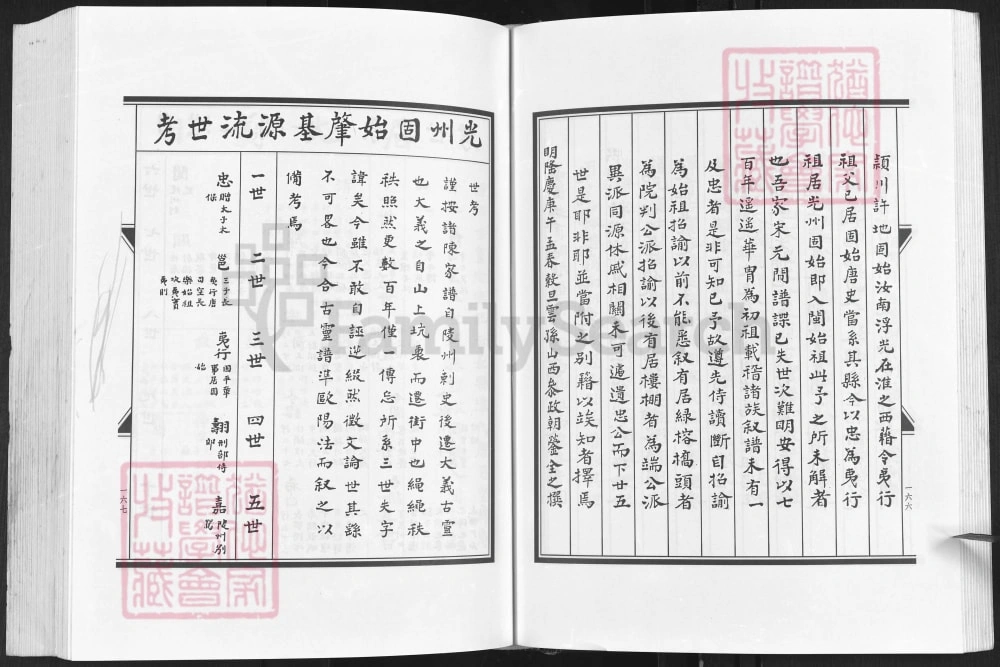 潁川許地固始汝南浮光在淮之西籍令夷行
祖父已居固始唐史當系其縣今以忠為夷行
祖居光州固始即入閩始祖此予之所未解者
也吾家宋元間譜諜已失世次難明安得以七
百年遙遙華胄為初祖載稽諸族叙譜未有一
及忠者是非可知已予故遵先侍讀斷自招諭
為始祖招諭以前不能悉叙有居綠榕橋頭者
為院判公派招諭以後有居樓棚者為端公派
異派同源休戚相關未可遽遺忠公而下廿五
世是耶非耶並當附之別籍以竢知者擇焉
明隆慶庚午孟春穀旦雲孫山西參政朝鋈全之撰
一六六
光州固始肇基源流世考
世考
謹按諸陳家譜自陵州刺史後遷大義古靈
也大義之自山上坑裏而遷街中也繩繩秩
秩照然更數百年僅一傳忘所系三世失字
諱矣今雖不敢自誣逆縱然徵文論世其繇
不可畧也今合古靈譜準歐陽法而叙之以
備考焉
一世 二世 三世 四世 五世
忠 贈太子太保
邕 三子長夷行唐司空長樂始祖次夷實夷則
夷行 固平章軍居固始
翶 刑部侍郎
嘉 陵州別駕
一六七
FamilySearch